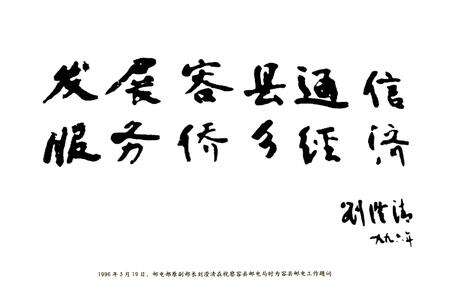 发展容县通信
服务侨乡经济
刘澄清
一九九六年
1996年3月19日，邮电部原副部长刘澄清在视察容县邮电局时为容县邮电工作题词